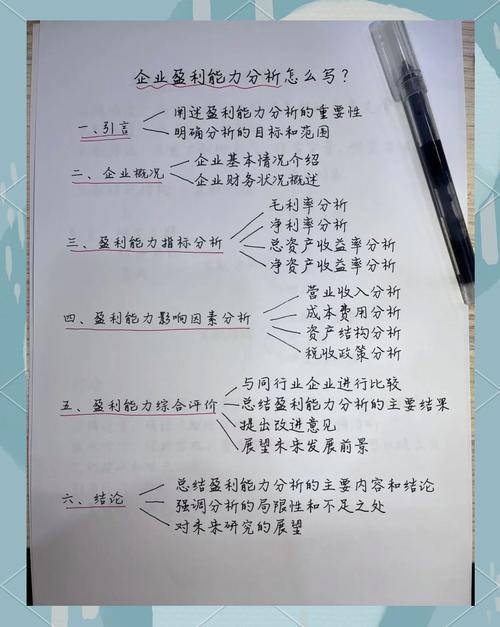 企业盈利能力分析怎么写?
一、引言
阐述盈利能力分析的重要性
明确分析的目标和范围
二、企业概况
企业基本情况介绍
企业财务状况概述
三、盈利能力指标分析
毛利率分析
净利率分析
总资产收益率分析
净资产收益率分析
四、盈利能力影响因素分析
营业收入分析
成本费用分析
资产结构分析
税收政策分析
五、盈利能力综合评价
与同行业企业进行比较
总结盈利能力分析的主要结果
提出改进意见
展望未来发展前景
六、结论
总结盈利能力分析的主要内容和结论
强调分析的局限性和不足之处
对未来研究的展望